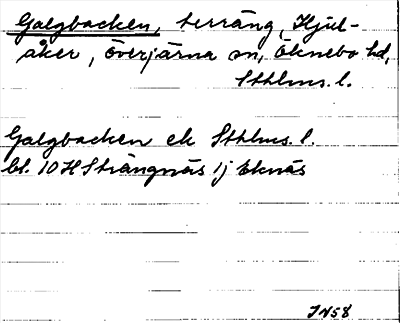 Galgbacken, terräng, Hjul-
åker, Överjärna sn, Öknebo hd,
Sthlms. l.
Galgbacken ek Sthlms. l.
bl. 10 H Strängnäs 1j Eknäs
JN58